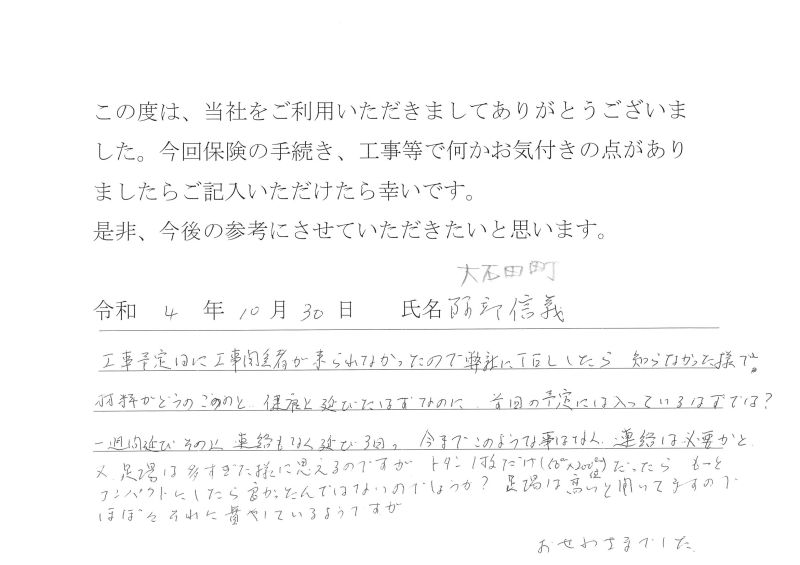 この度は、当社をご利用いただきましてありがとうございま
した。今回保険の手続き、工事等で何かお気付きの点があり
ましたらご記入いただけたら幸いです。
是非、今後の参考にさせていただきたいと思います。
大石田町
令和 4 年 10 月 30 日 氏名 阿部信義
工事予定日に工事関係者が来られなかったので弊社にTELしたら 知らなかった様で。
材料がどうのこうのと と延びたはずなのに、前回の予定には入っているはずでは?
一週間延び その後 連絡もなく延び 3回 今までこのような事はなく 連絡は必要かと
又 足場は多すぎた様に思えるのですが トタン1枚だけ だったら もっと
コンパクトにしたら良かったんではないのでしょうか? 足場は高いと聞いてますので
ほぼ それに費やしているようですが
おせわさまでした